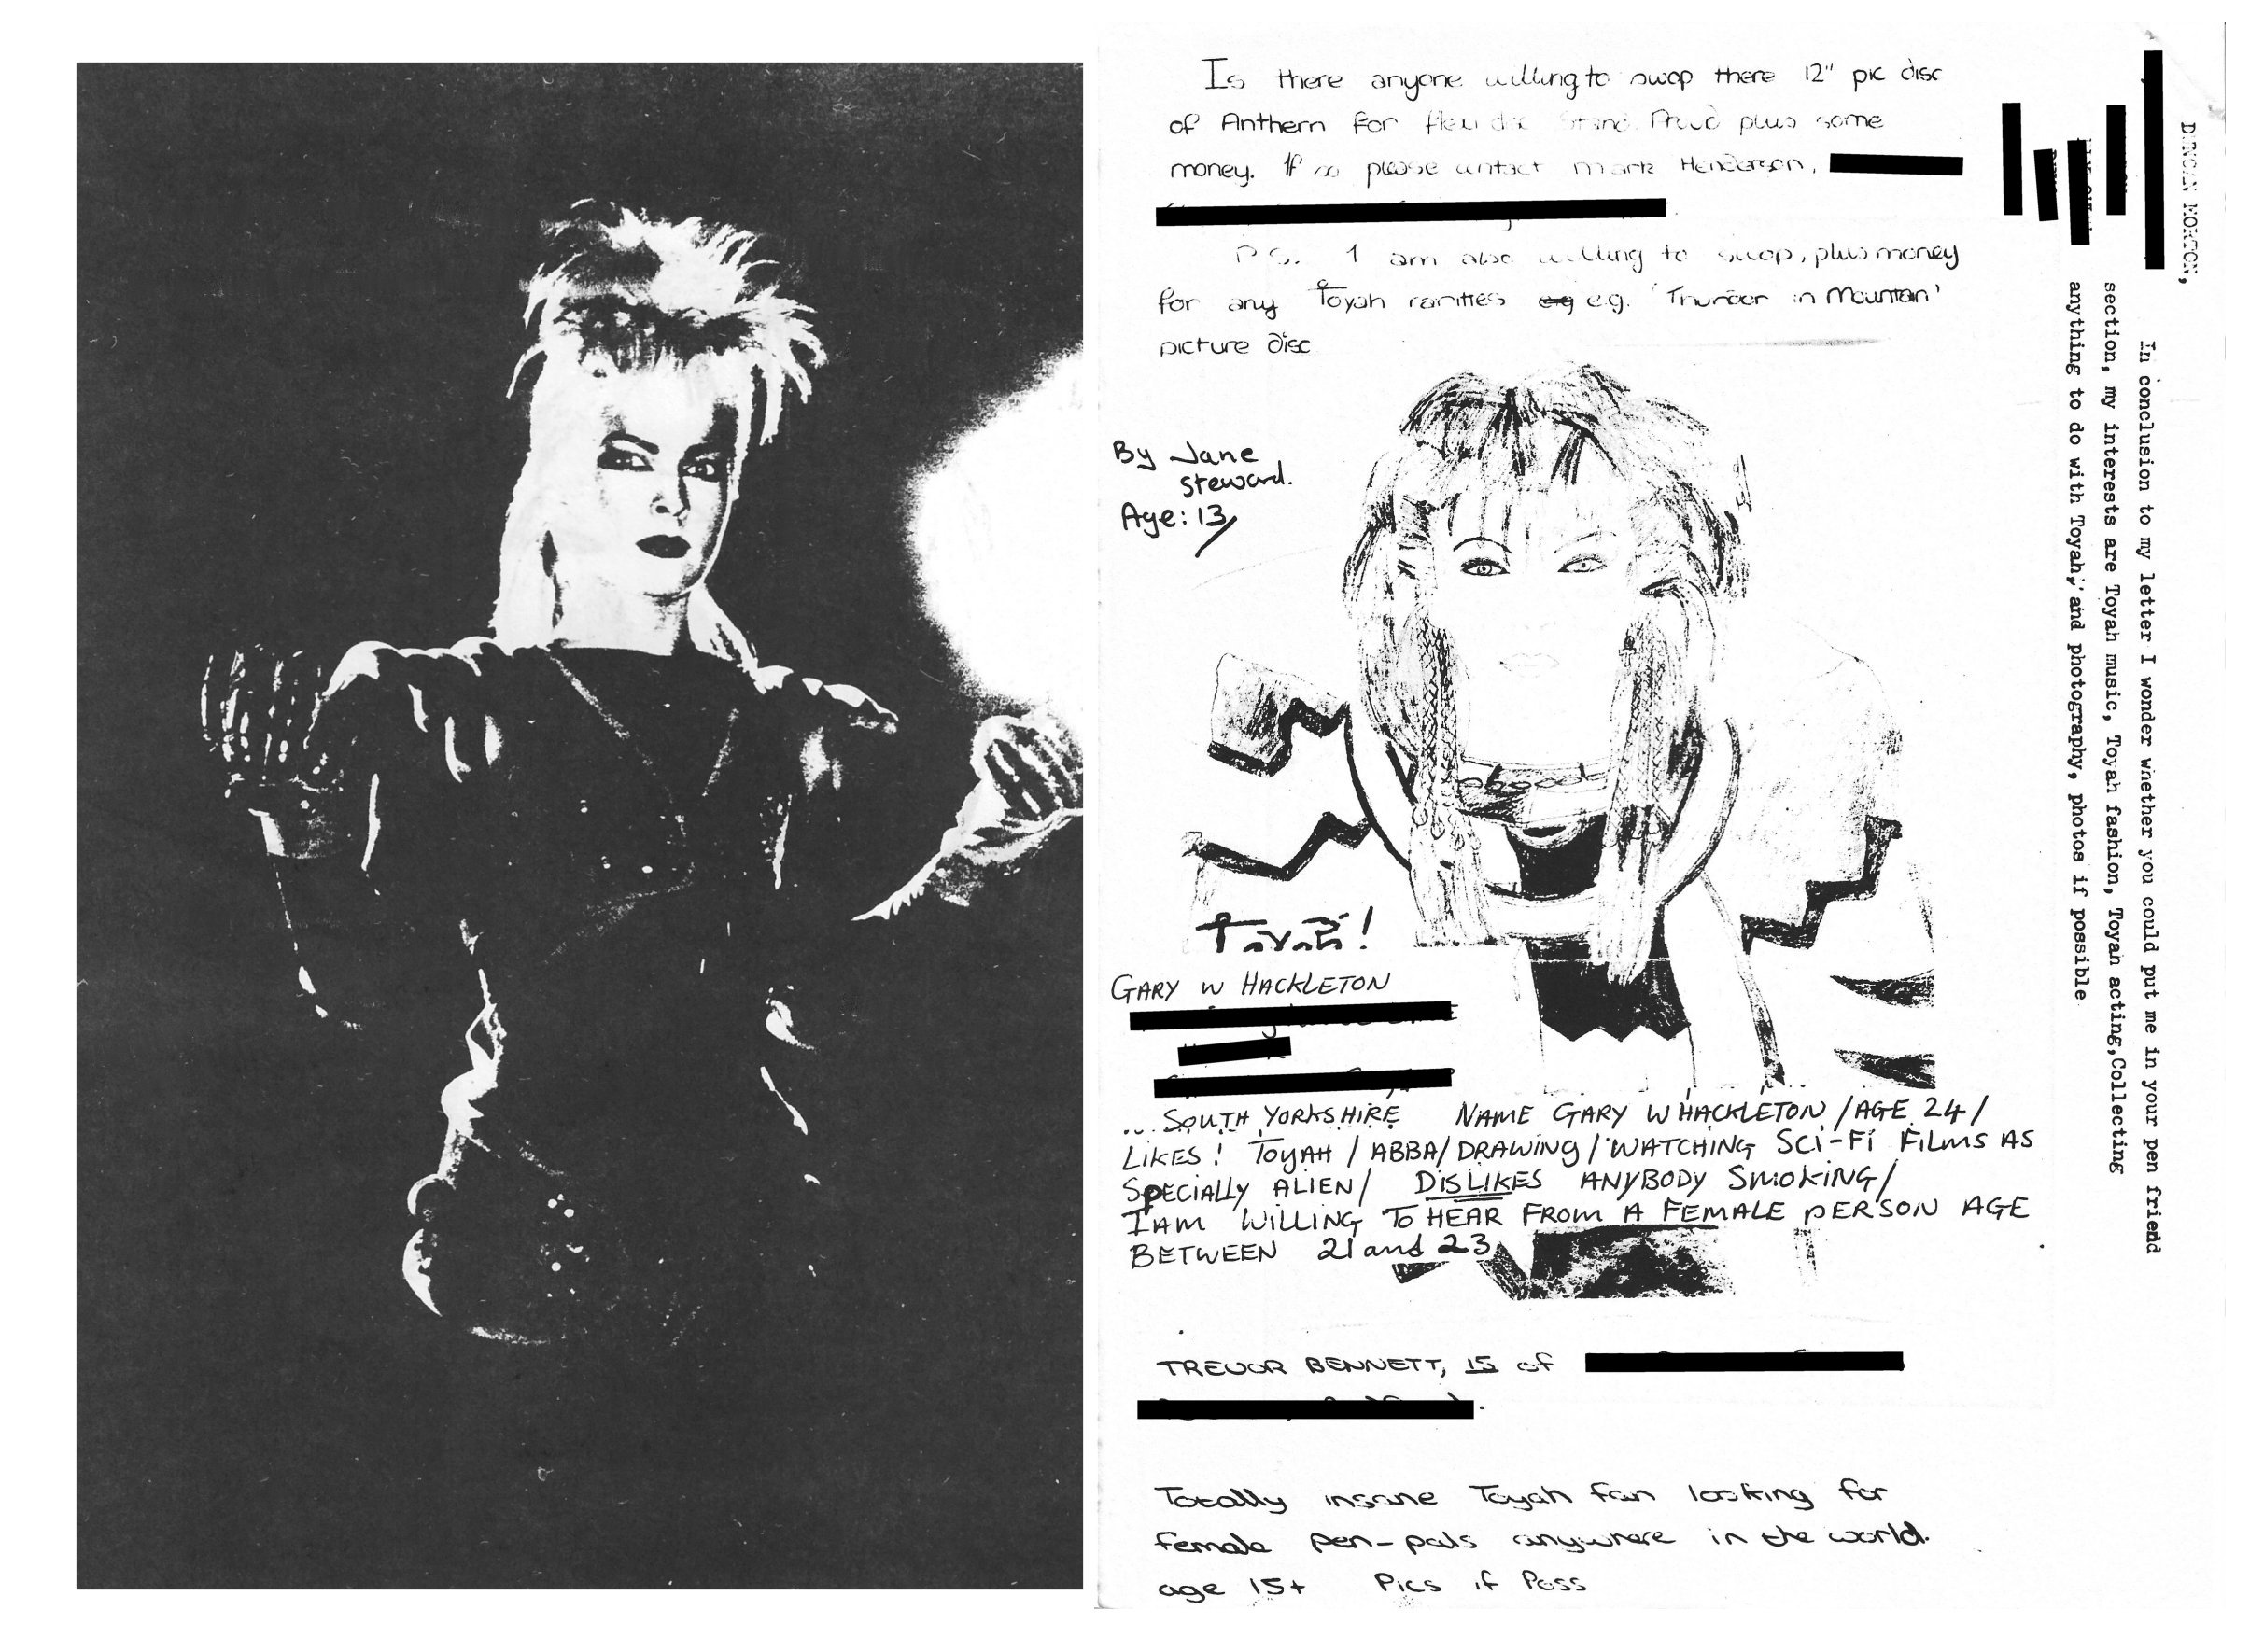 Is there anyone willing to swop there 12" pic disc
of Anthem for flexi disc Stand Proud plus some
money. If so please contact Mark Henderson,
P.S. I am also willing to swop, plus money
for any Toyah rarities eg e.g. 'Thunder in Mountain'
picture disc
By Jane
Steward.
Age: 13
Toyah!
GARY W HACKLETON
SOUTH YORKSHIRE NAME GARY W HACKLETON / AGE 24 /
LIKES! TOYAH / ABBA / DRAWING / WATCHING SCI-FI FILMS AS
SPECIALLY ALIEN / DISLIKES ANYBODY SMOKING /
I AM WILLING TO HEAR FROM A FEMALE PERSON AGE
BETWEEN 21 and 23
TREVOR BENNETT, 15 of
Totally insane Toyah fan looking for
female pen-pals anywhere in the world.
age 15+ Pics if Poss
DUNCAN MORTON,
In conclusion to my letter I wonder whether you could put me in your pen friend
section, my interests are Toyah music, Toyah fashion, Toyah acting,Collecting
anything to do with Toyah, and photography, photos if possible